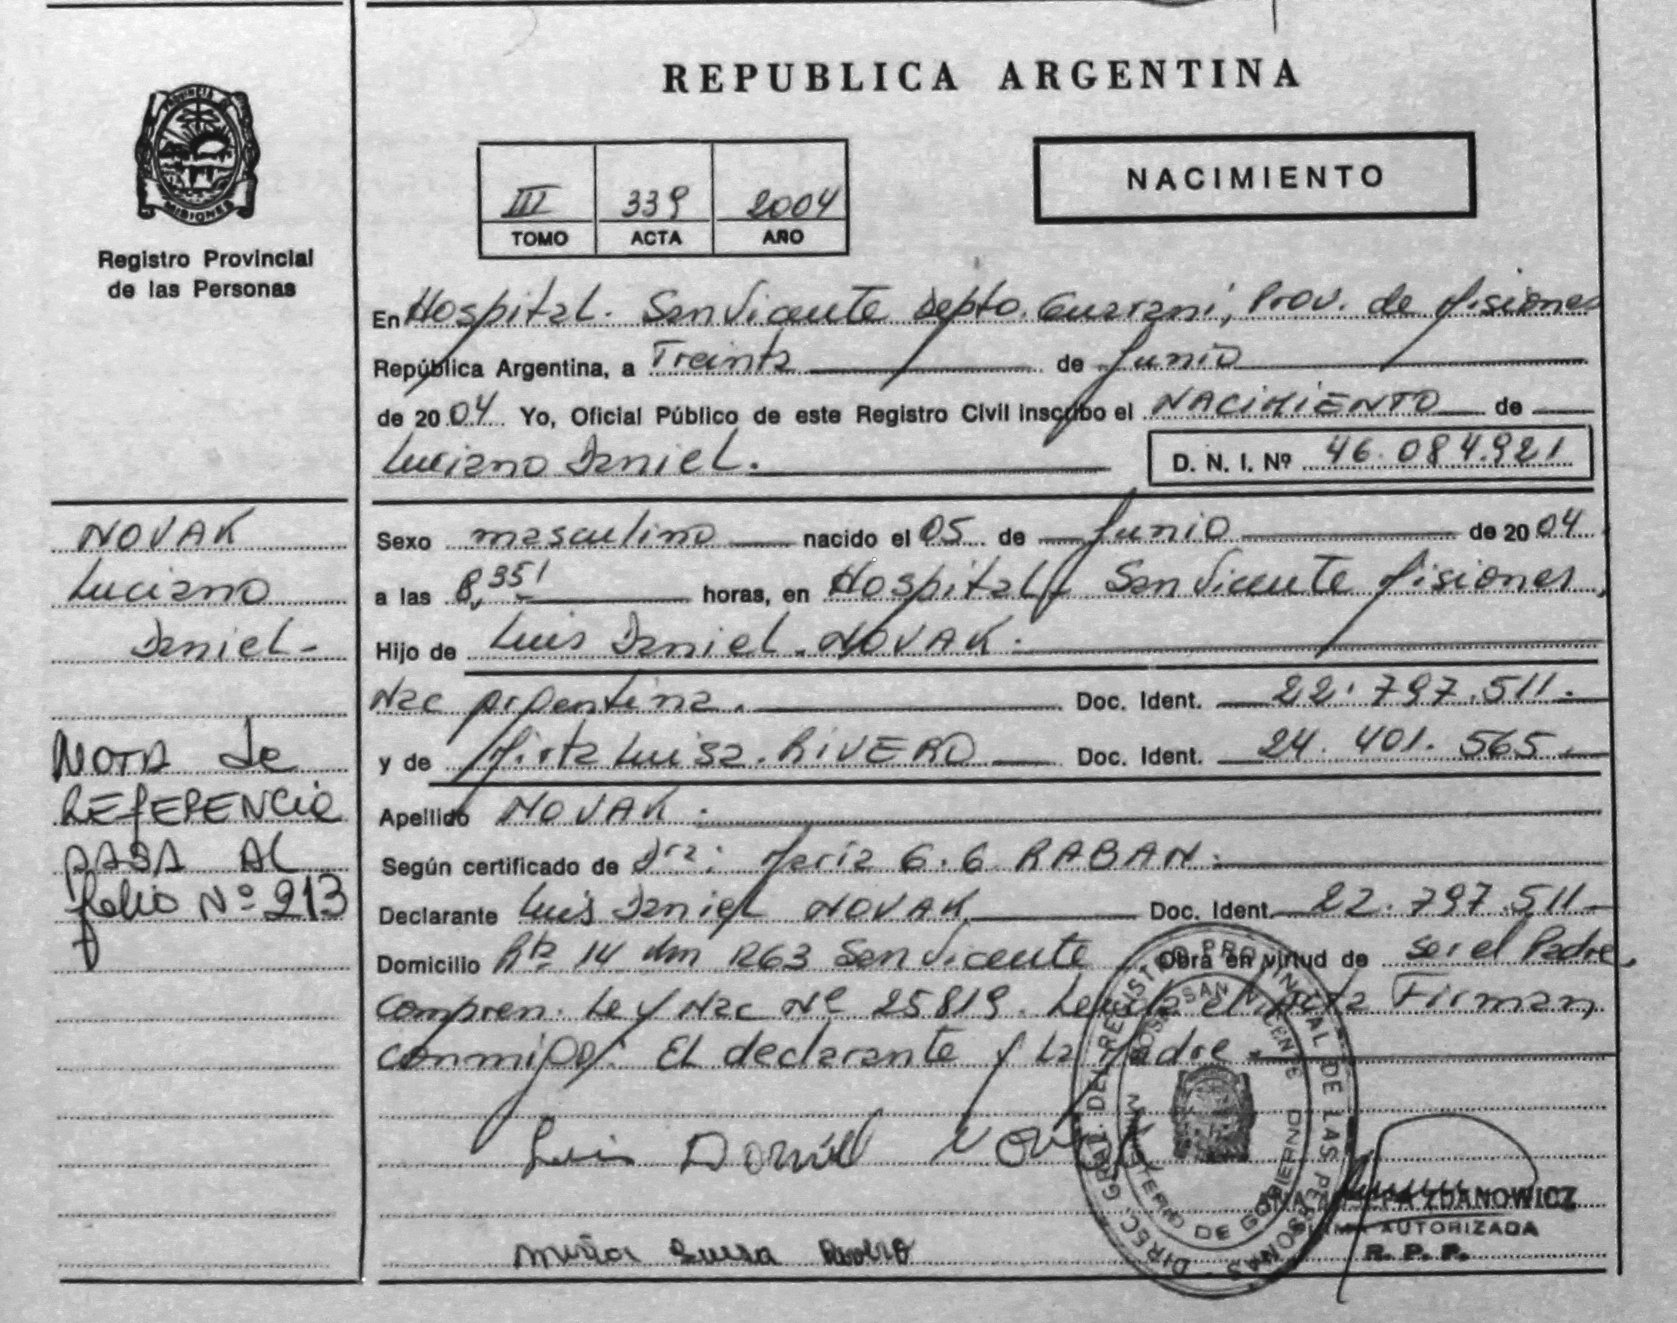 PROVINCIA DE
MISIONES
Registro Provincial
de las Personas
REPUBLICA ARGENTINA
III 339 2004
TOMO ACTA AÑO
NACIMIENTO
En Hospital. San Vicente Depto. Guarani, Prov. de Misiones
República Argentina, a Treinta de Junio
de 2004 Yo, Oficial Público de este Registro Civil inscribo el NACIMIENTO de
Luciano Daniel.
D. N. I. Nº 46.084.921
NOVAK
Luciano
Daniel-
NOTA de
REFERENCIA
PASA AL
folio Nº 213
Sexo masculino nacido el 05 de Junio de 2004
a las 8,35' horas, en Hospital San Vicente Misiones,
Hijo de Luis Daniel. NOVAK.
Nac Argentina. Doc. Ident. 22.797.511.
y de Mirta Luisa. RIVERO Doc. Ident. 24.401.565
Apellido NOVAK.
Según certificado de Dra: Maria G.G RABAN.
Declarante Luis Daniel NOVAK Doc. Ident. 22.797.511
Domicilio Rta 14 Km 1263 San Vicente Obra en virtud de ser el Padre
Compren. Ley Nac Nº 25819. Leida el Acta Firman
conmigo: El declarante y La Madre
Luis Daniel Novak
Mirta Luisa Rivero
DIREC. GRAL. DEL REGISTRO PROVINCIAL DE LAS PERSONAS
SAN VICENTE
DE GOBIERNO
ZDANOWICZ
FIRMA AUTORIZADA
R. P. P.